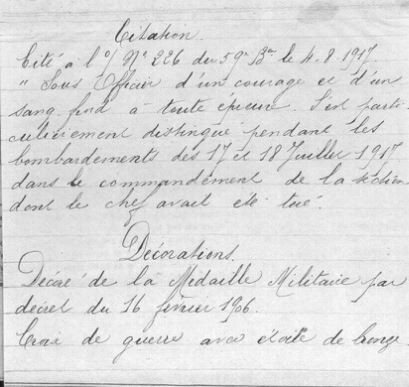 Citation.
Cité à l'o/ N° 226 du 59e Bon le 4.8.1917.
"Sous Officier d'un courage et d'un
sang froid à toute épreuve. S'est parti-
culièrement distingué pendant les
bombardements des 17 et 18 Juillet 1917
dans le commandement de la section
dont le chef avait été tué.
Décorations.
Décoré de la Médaille Militaire par
décret du 16 février 1906.
Croix de guerre avec étoile de bronze